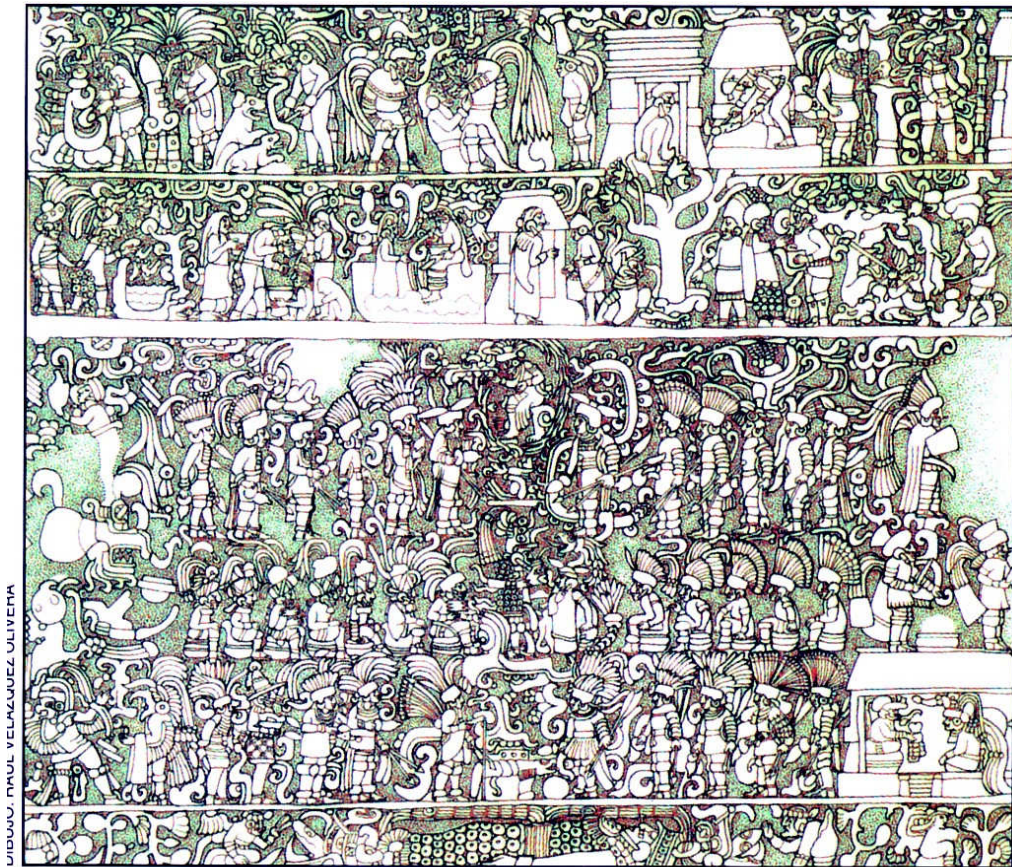 DIBUJO: RAÚL VELÁZQUEZ OLIVERA